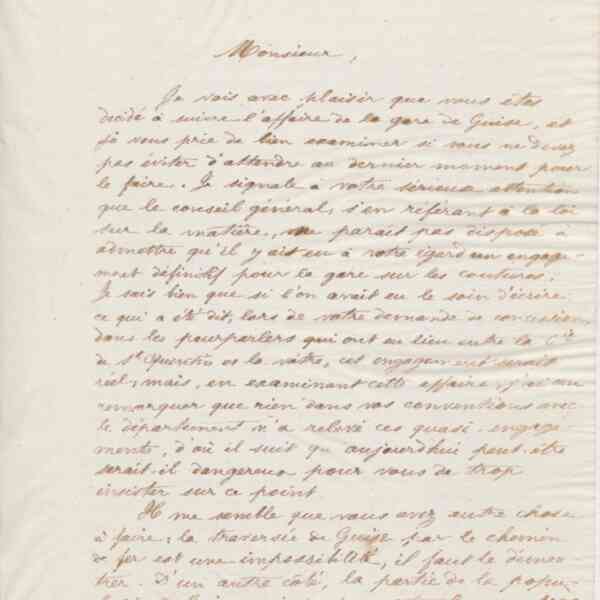 Monsieur,
Je vois avec plaisir que vous êtes
décidé à suivre l'affaire de la gare de Guise, et
je vous prie de bien examiner si vous ne devez
pas éviter d'attendre au dernier moment pour
le faire. Je signale à votre sérieuse attention
que le conseil général, s'en référant à la loi
sur la matière, ne parait pas disposé à
admettre qu'il y ait eu à votre égard un engage-
ment définitif pour la gare sur les coutures.
Je sais bien que si l'on avait eu le soin d'écrire
ce qui a été dit, lors de votre demande de concession,
dans les pourparlers qui ont eu lieu entre la Cie
de St Quentin et la vôtre, ces engagement serait
réel, mais, en examinant cette affaire, j'ai cru
remarquer que rien dans vos conventions avec
le département n'a relevé ces quasi-engage-
ments, d'où il suit qu'aujourd'hui peut-être
serait-il dangereux pour vous de trop
insister sur ce point
Il me semble que vous avez autre chose
à faire; la traversée de Guise par le chemin
de fer est une impossibilité, il faut le démon-
trer. D'un autre côté, la partie de la popu-